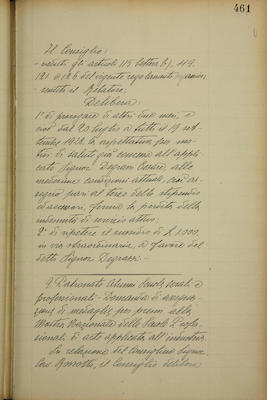 461
Il Consiglio:
- veduti gli articoli 115 lettera b), 119.
121 e 126 del vigente regolamento organico;
- sentito il Relatore;
Delibera
1° di prorogare di altri due mesi, e
cioè dal 20 luglio a tutto il 19 set-
tembre 1928, la aspettativa per mo-
tivi di salute già concessa all'appli-
cato Signor Degrassi Cesare alle
medesime condizioni attuali, cioè as-
segno pari al terzo dello stipendio
ed accessori, ferma la perdita della
indennità di servizio attivo;
2° di ripetere il sussidio di £ 1.000,
in via straordinaria, a favore del
detto Signor Degrassi.
9. Patronato Alunni Scuole Serali e
professionali - Domanda di assegna-
zione di medaglie per premi alla
Mostra Nazionale delle Scuole Profes-
sionali di arte applicata all'industria.
Su relazione del Consigliere Signor
Cav. il Consiglio delibera